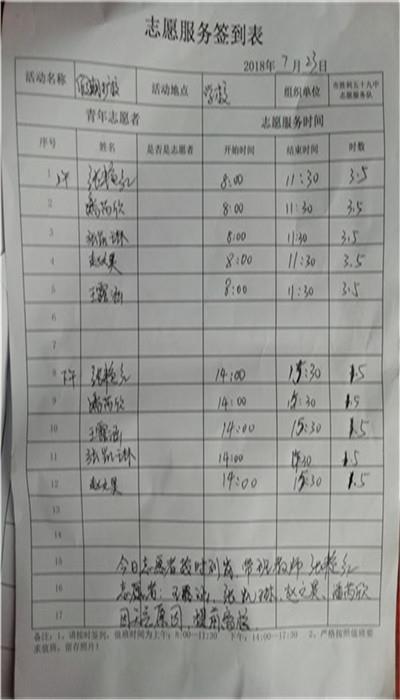 志愿服务签到表
2018年7月23日
活动名称 活动地点 学校 组织单位 市胜利五十九中志愿服务队
青年志愿者 志愿服务时间
序号 姓名 是否是志愿者 开始时间 结束时间 时数
1 上午 8:00 11:30 3.5
2 潘芮欣 8:00 11:30 3.5
3 8:00 11:30 3.5
4 赵文昊 8:00 11:30 3.5
5 王露涵 8:00 11:30 3.5
6
7
8 下午 14:00 15:30 1.5
9 潘芮欣 14:00 15:30 1.5
10 王露涵 14:00 15:30 1.5
11 14:00 15:30 1.5
12 赵文昊 14:00 15:30 1.5
13
14
15 今日志愿者按时到岗,带班教师
16 志愿者:王露涵、赵文昊、潘芮欣
17 原因,提前离校
备注:1、请按时签到,值班时间为上午:8:00—11:30 下午:14:00—17:30 2、严格按照值班要
求值班,留存照片!